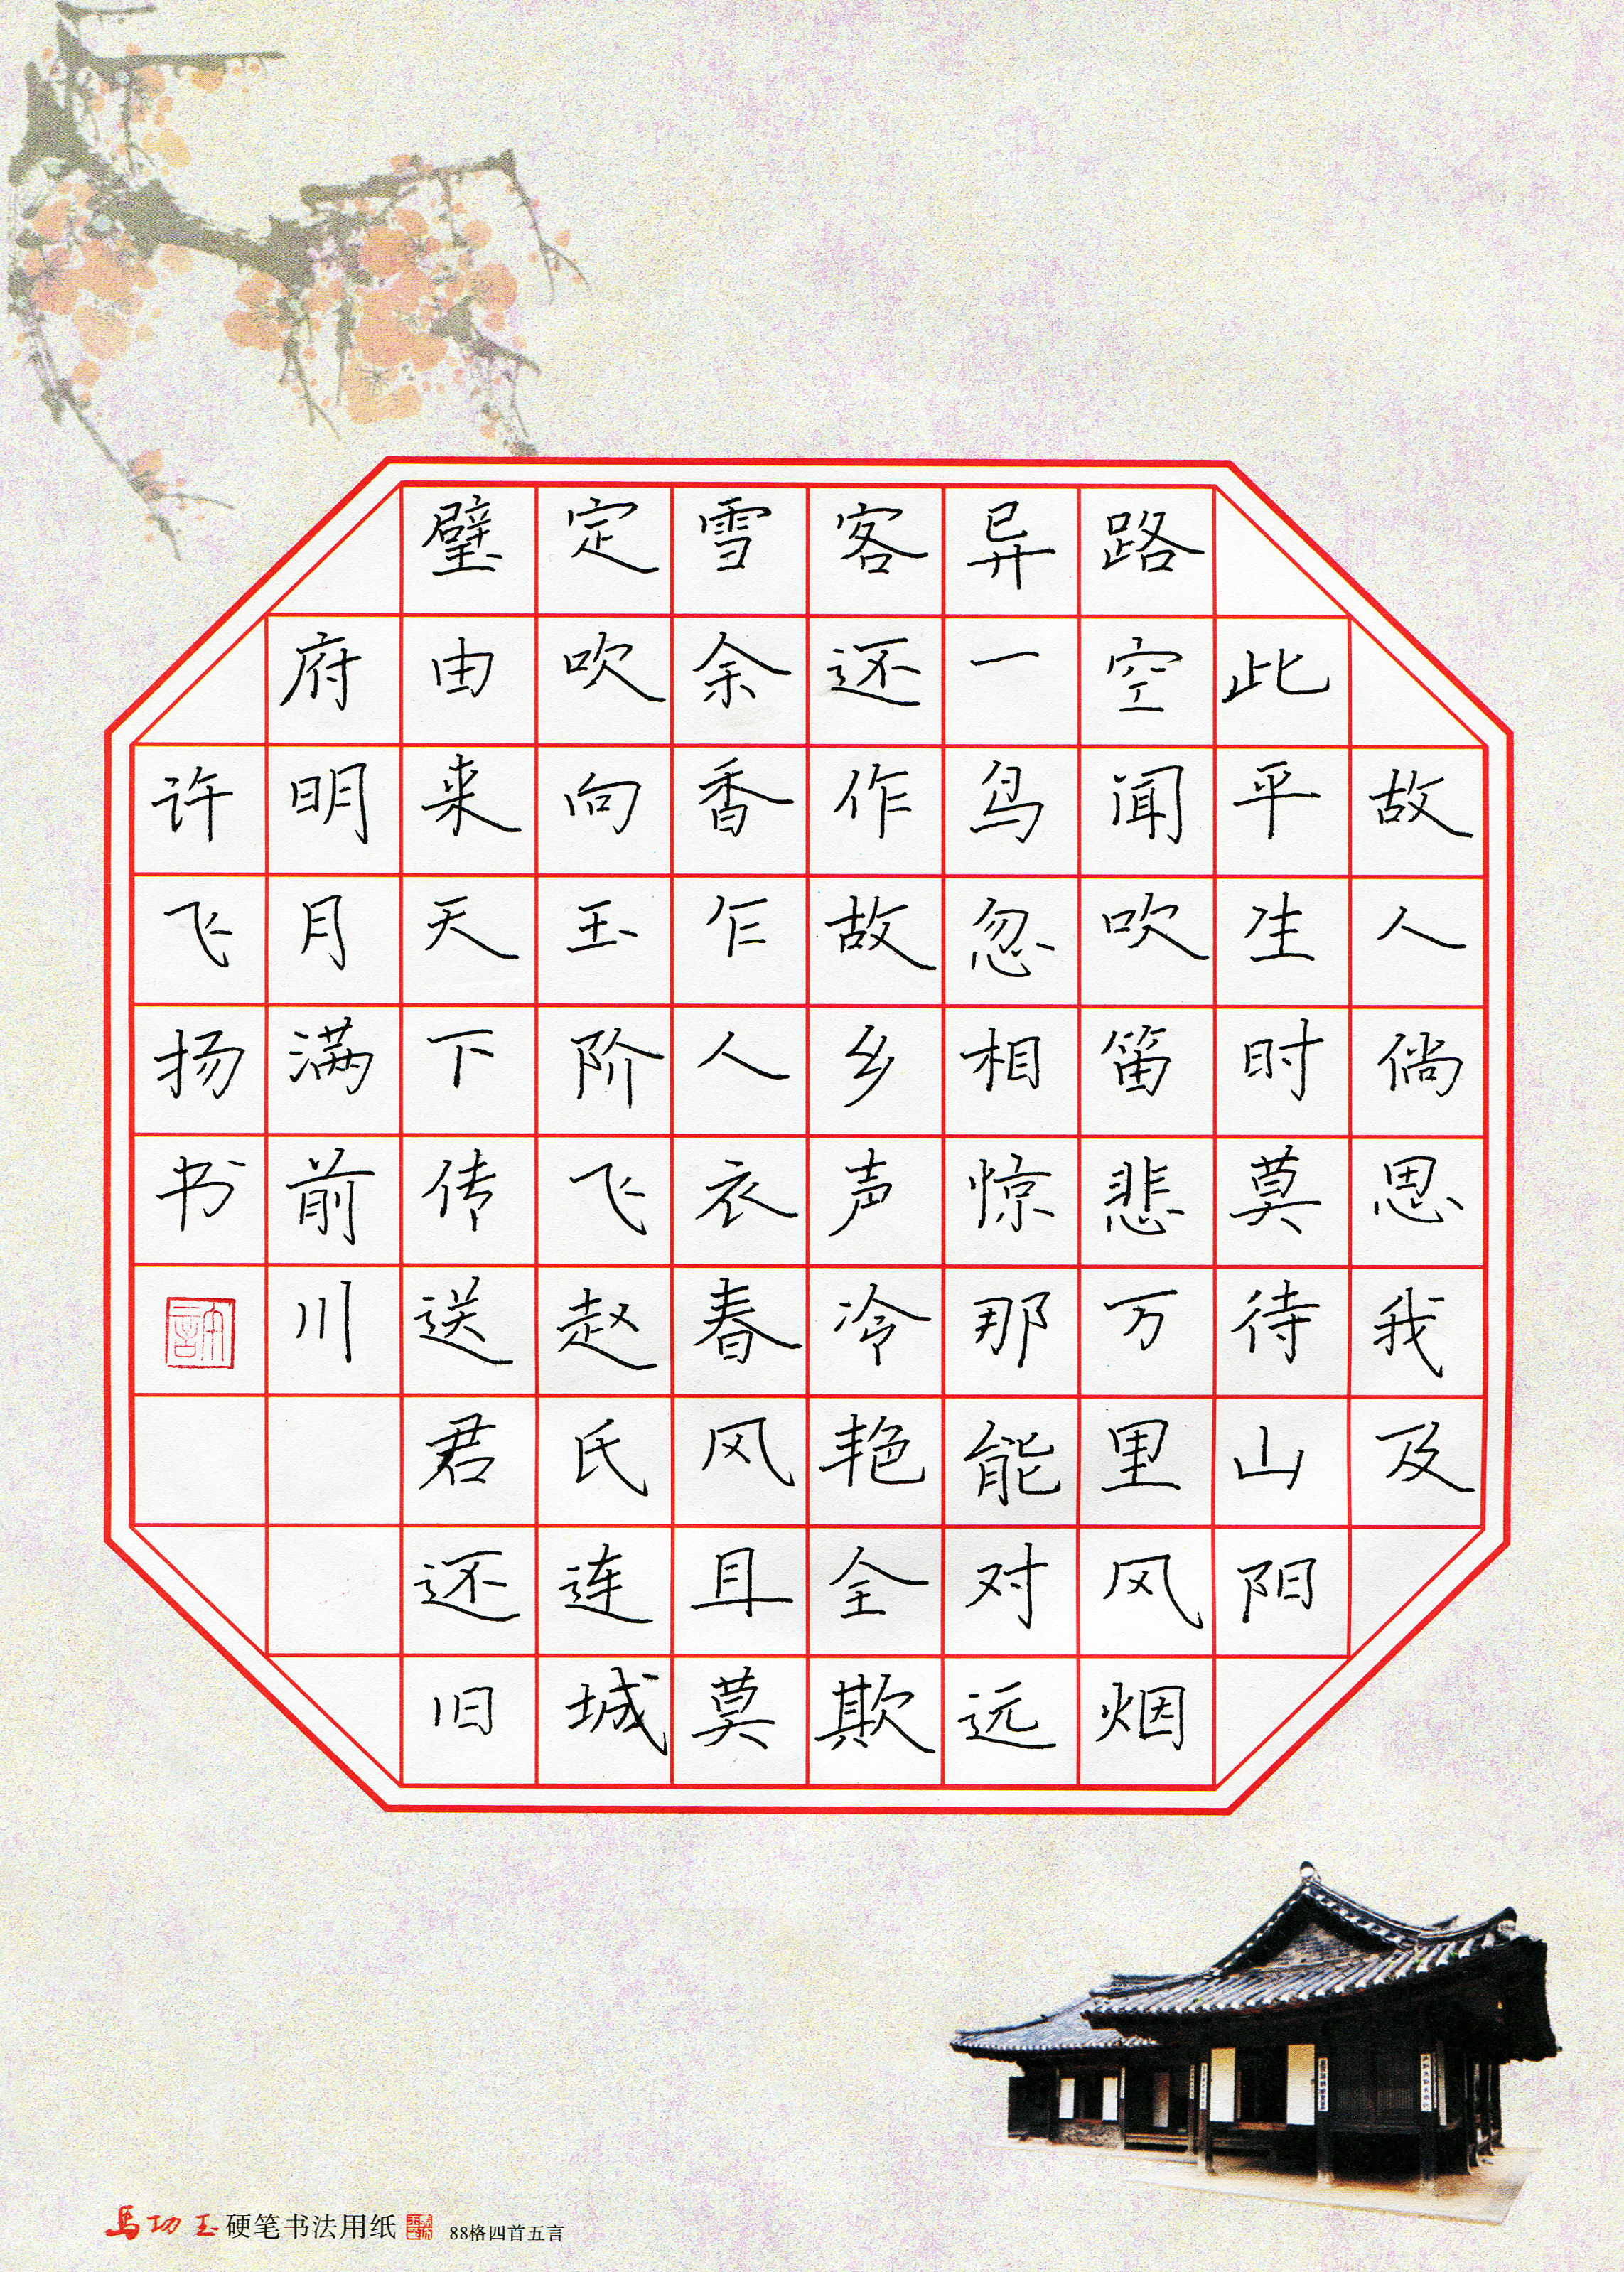 故人倘思我及
此平生时莫待山阳
路空闻吹笛悲万里风烟
异一鸟忽相惊那能对远
客还作故乡声冷艳全欺
雪余香乍人衣春风且莫
定吹向玉阶飞赵氏连城
璧由来天下传送君还旧
府明月满前川
许飞扬书
馬功玉 硬笔书法用纸 88格四首五言